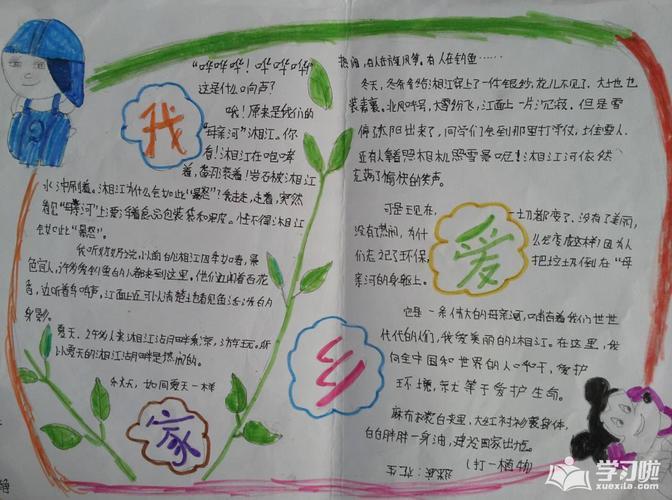 "哗哗哗！哗哗哗"
这是什么响声？
哦！原来是我们的
"母亲河"湘江。你
看！湘江在咆哮
着，翻
着！岩石被湘江
水冲刷着。湘江为什么会如此"暴怒"？我走走，走着，突然
"母亲河"上漂浮着食品包装袋和果皮。怪不得湘江
会如此"暴怒"。
我听奶奶说，以前的湘江四季如春，景
色宜人，许许多多
的人都来到这里。他们边闻着百花
香，边听着鸟鸣声，江面上还可以清楚地看见鱼活泼的
身影。
夏天，
人来湘江
乘凉，
所
以夏天的湘江
是热闹的。
秋天，如同夏天一样
热闹，有人在放风筝，有人在钓鱼……
冬天，冬爷爷给湘江穿上了一件银纱，花儿不见了，大地也
装素裹。北风呼号，大雪纷飞，江面上一片沉寂。但是雪
停
太阳出来了，同学们会到那里打雪仗，堆雪人，
还有人拿着照相机照雪景呢！湘江河依然
充满了愉快的笑声。
可是现在，
一切都变了，没有了美丽，
没有热闹，为什
么会变成这样？因为人
们忘记了环保，
把垃圾倒在"母
亲河的身躯上。
它是一条伟大的母亲河，哺育着我们世世
代代的人们，我爱美丽的湘江。在这里，我
向全中国和世界的人呼吁，爱护
环境，就等于爱护生命。
麻布
里，大红衬衫裹身体，
白白胖胖一身油，建设国家出
。
（打一植物）
我
爱
家
乡
学习啦
xuexila.com